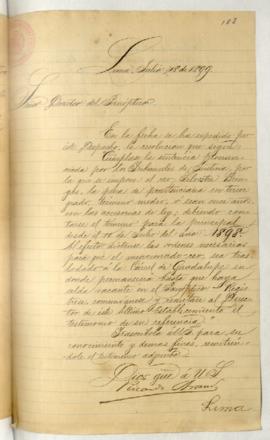 103
Lima, Julio 18 de 1899.
Señor Director del Panóptico
En la fecha se ha expedido por
este Despacho, la resolucion que sigue:
"Cúmplase la sentencia pronun-
ciada por los Tribunales de Justicia, por
la que se impone al reo
la pena de penitenciaria en tercer
grado, término medio, o sean
con las accesorias de ley; debiendo con-
tarse el término para la principal
desde el 18 de Julio del año 1898.
Al efecto díctense las ordenes necesarias
para que el mencionado reo, sea tras-
ladado a la Cárcel de Guadalupe en
donde permanecerá hasta que haya
celda vacante en el Panóptico. Regis-
trese, comuniquese y remítase al Direc-
tor de este último Establecimiento el
testimonio de su referencia."
Trascríbolo a US. para su
conocimiento y demas fines, remitien-
dole el testimonio adjunto.
Dios gue. á US.
Lima